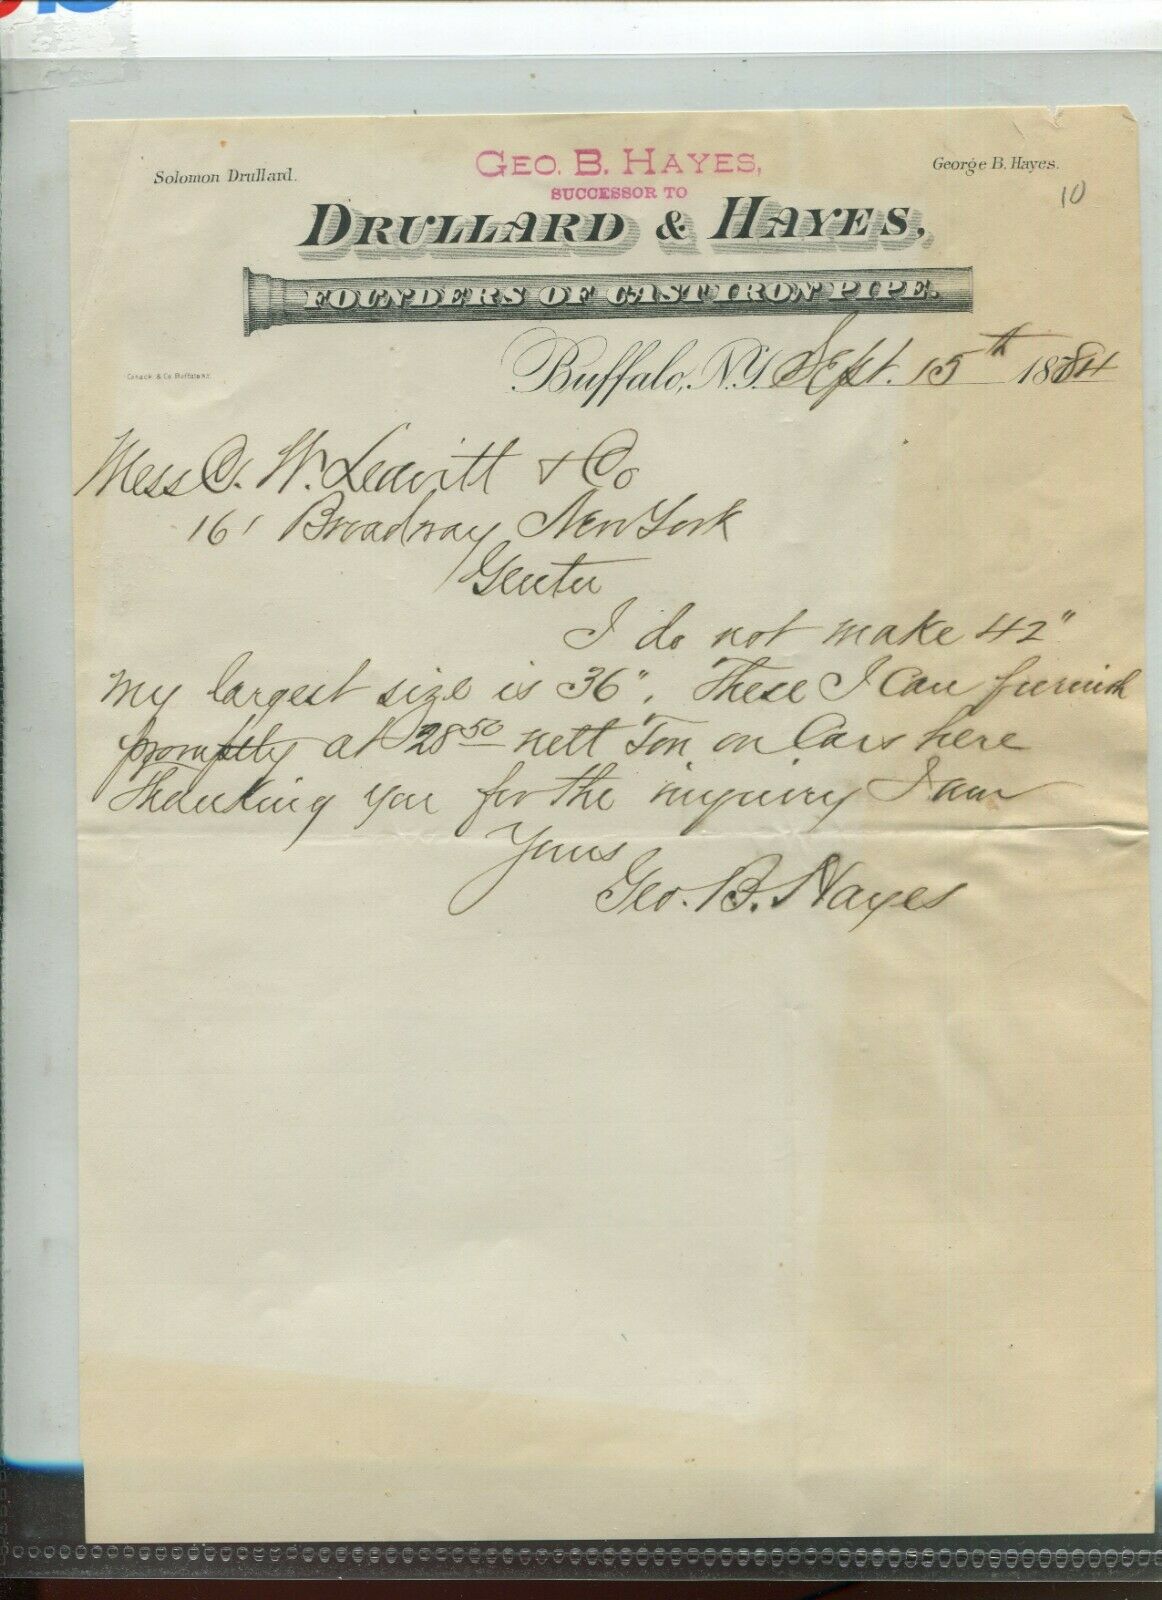 Solomon Drullard.
GEO. B. HAYES,
George B. Hayes.
SUCCESSOR TO
10
DRULLARD & HAYES,
FOUNDERS OF CAST IRON PIPE.
Buffalo, N.Y. Sept. 15th 1884
Mess C. W. Leavitt & Co
161 Broadway New York
Gents
I do not make 42"
my largest size is 36". These I can furnish
promptly at 28 50 nett Ton on Cars here
Thanking you for the inquiry I am
Yours
Geo. B. Hayes